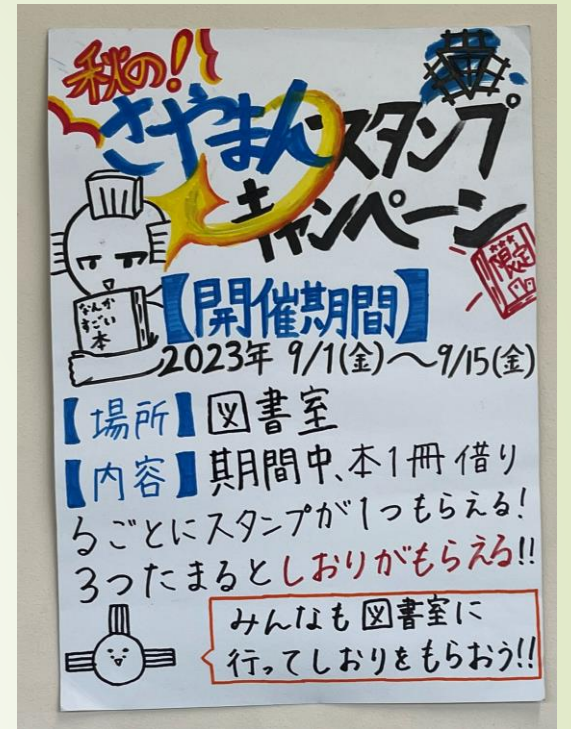 秋の!
さやまんスタンプ
キャンペーン
限定
なんか
すごい
本
【開催期間】
2023年 9/1(金)〜9/15(金)
【場所】図書室
【内容】期間中、本1冊借り
るごとにスタンプが1つもらえる!
3つたまるとしおりがもらえる!!
みんなも図書室に
行ってしおりをもらおう!!